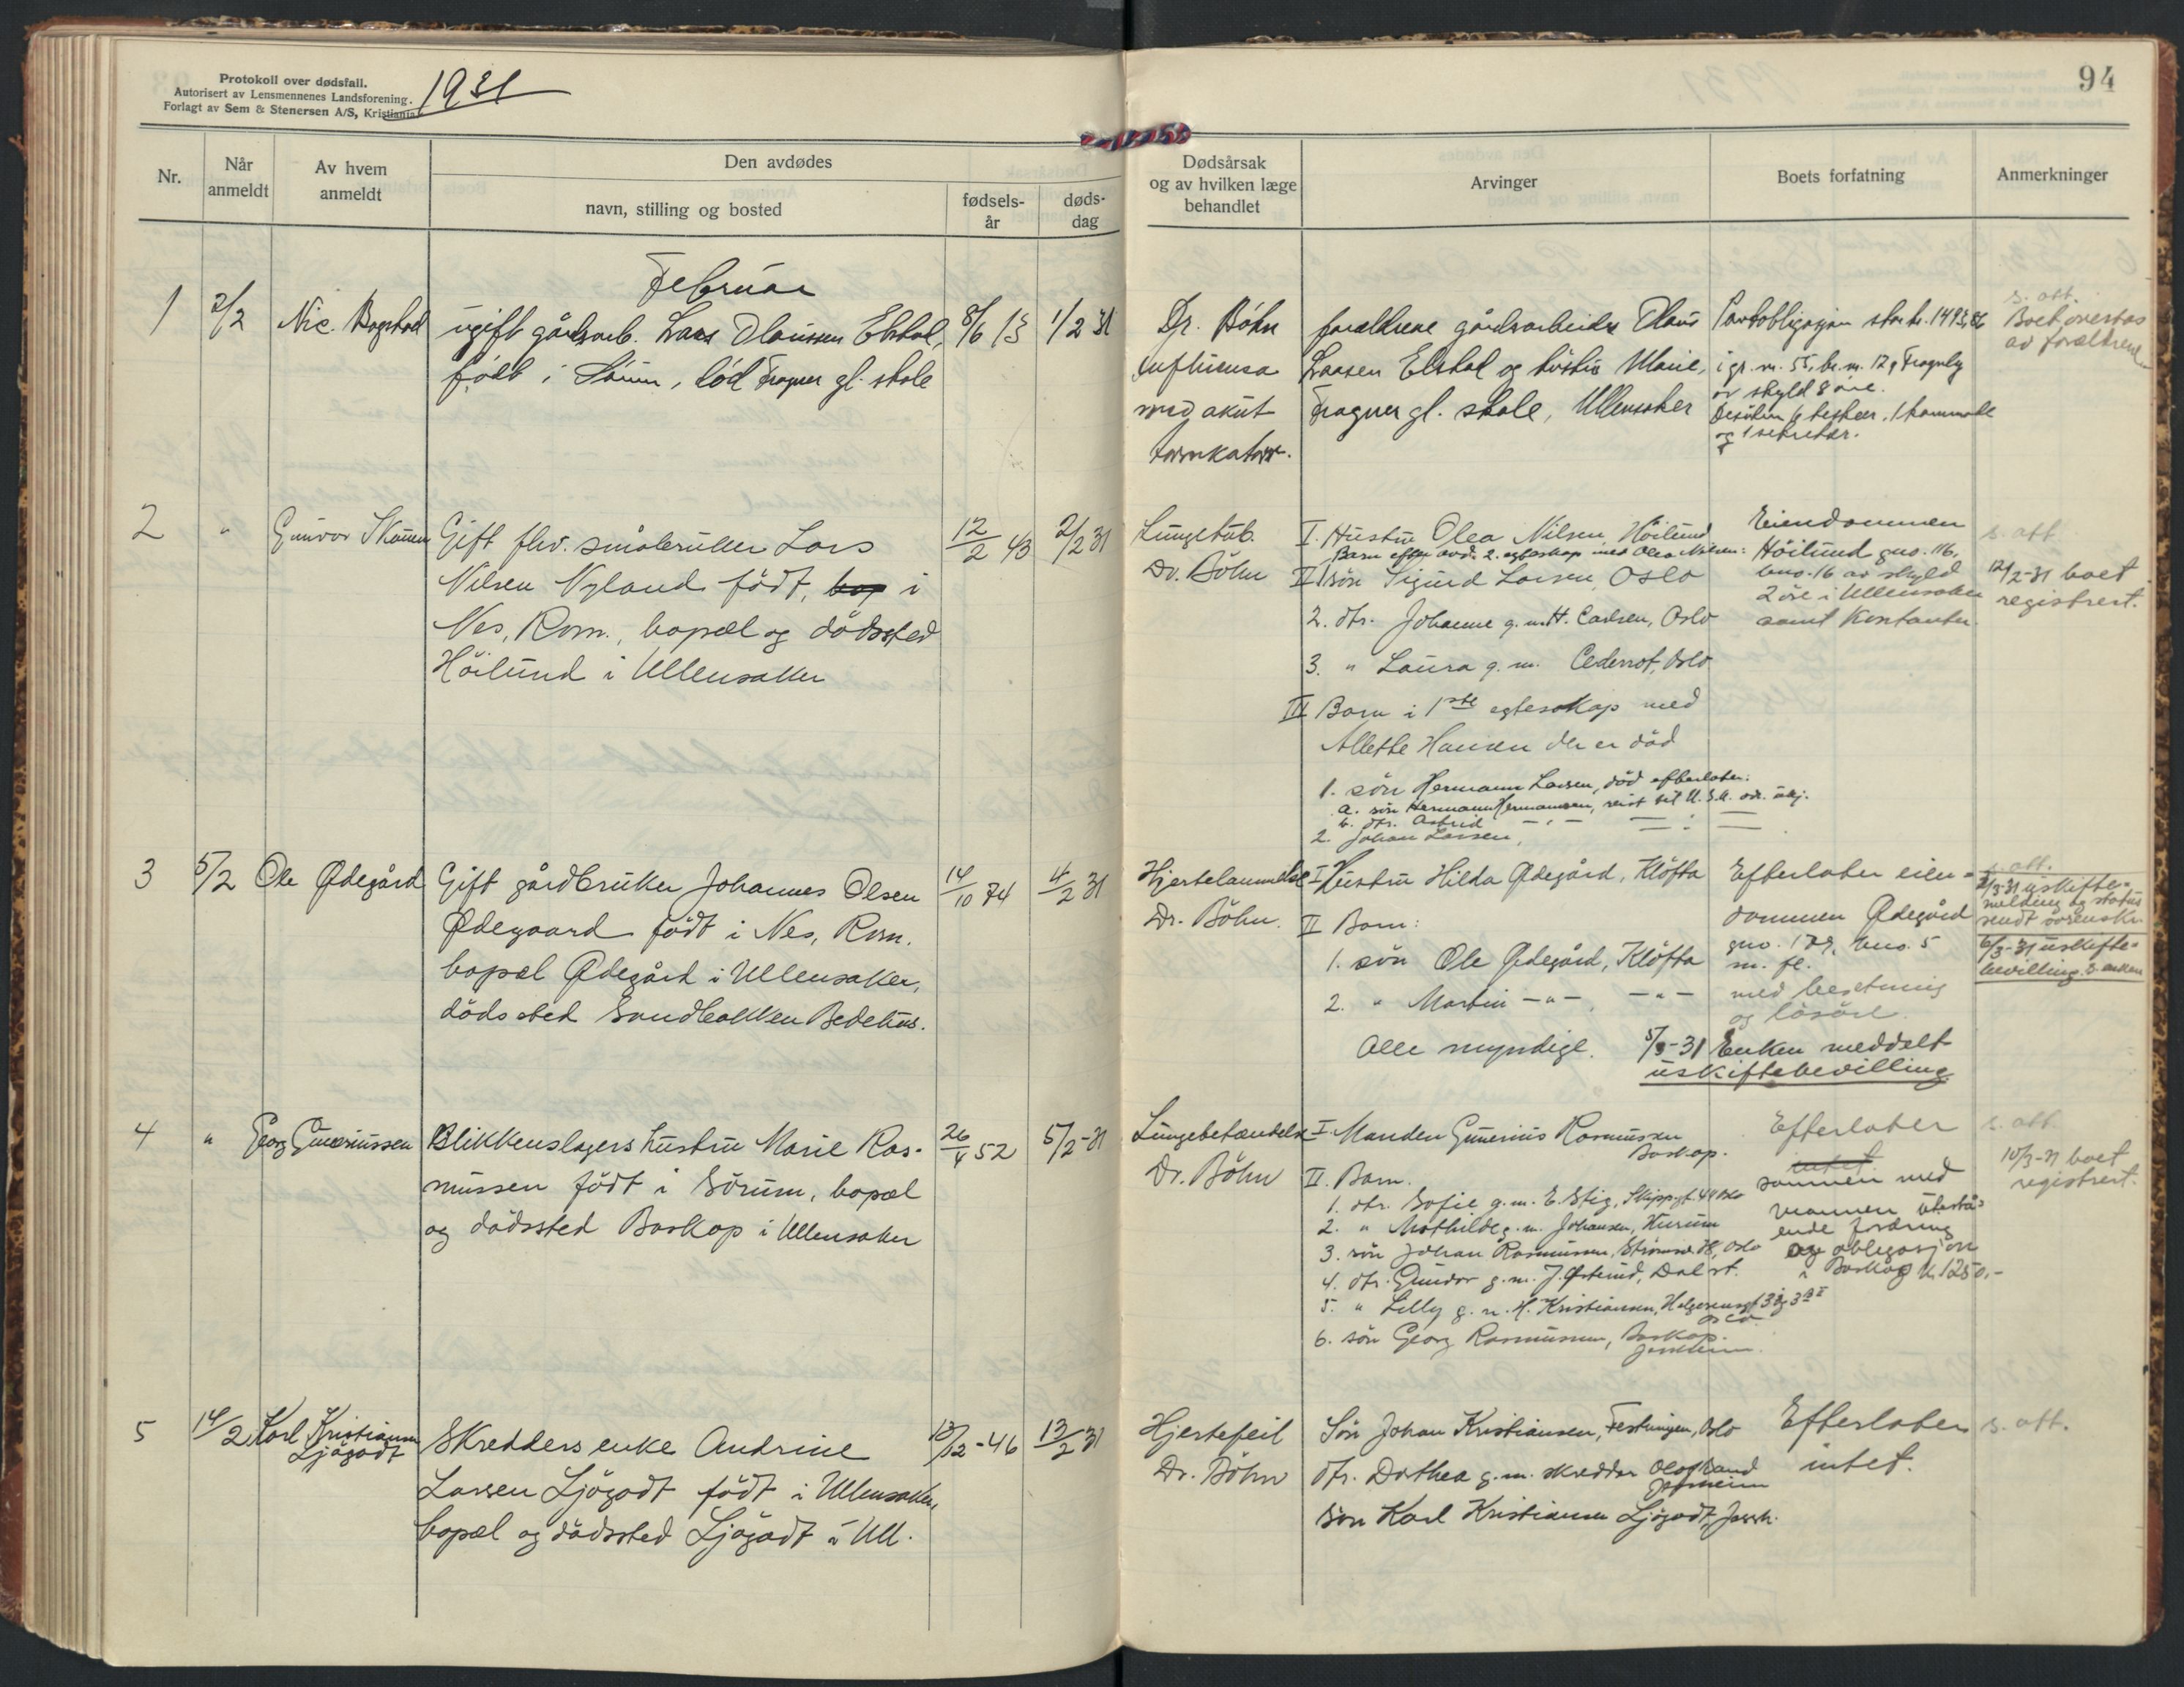 Protokoll over dødsfall.
Autorisert av Lensmennenes Landsforening.
Forlagt av Sem & Stenersen A/S, Kristiania.
1931
94
Nr.
Når anmeldt
Av hvem anmeldt
Den avdødes
navn, stilling og bosted
fødsels-år
døds-dag
Dødsårsak og av hvilken læge behandlet
Arvinger
Boets forfatning
Anmerkninger
Februar
1
2/2
Nic. Bogstad
ugift gårdsarb. Lars Olaussen Elstad,
født i Sørum, død Fragner gl. skole
8/6 13
1/2 31
Dr. Böhn
Influensa
med akut
forældrene gårdsarbeider Olaus
Laasen Elstad og hustru Marie,
Fragner gl. skole, Ullensaker
Pantobligasjon stor kr. 1493,86
i gr. nr. 55, br. nr. 12, Fragnly
av skyld 8 øre.
og 1 sekretær.
s. att.
Boet overtas
av forældrene
2
"
Gunvor Skaunen
Gift fhv. småbruker Lars
Nilsen Nyland født, bop i
Nes, Rom., bopæl og dödssted
Höilund i Ullensaker
12/2 43
2/2 31
Lungetub.
Dr. Böhn
I. Hustru Olea Nilsen, Höilund
Barn efter avd. 2. egteskap med Olea Nilsen:
II 1 sön Sigurd Larsen, Oslo
2. dtr. Johanne g. m. H. Carlsen, Oslo
3. " Laura g. m. Cederrot, Oslo
III Barn i 1ste egteskap med
Allette Hansen der er död
1. sön Hermann Larsen, död efterlater:
a. sön Hermann Hermansen, reist til U.S.A. adr. ukj.
b. dtr. Astrid - " - - : -
2. Johan Larsen,
Eiendommen
Höilund gno. 116,
bno. 16 av skyld
2 öre i Ullensaker
samt kontanter.
s. att.
12/2-31 boet
registrert.
3
5/2
Ole Ødegård
Gift gårdbruker Johannes Olsen
Ødegaard födt i Nes, Rom.
bopæl Ødegård i Ullensaker,
dödssted Sandbakken Bedehus.
14/10 74
4/2 31
Hjertelammelse
Dr. Böhn.
I Hustru Hilda Ødegård, Klöfta
II Barn:
1. sön Ole Ødegård, Klöfta
2. " Martin - " - - " -
Alle myndige.
Efterlater eien=
dommen Ødegård
gno. 179, bno. 5
m. fl.
med besetning
og lösöre.
5/3-31 Enken meddelt
uskiftebevilling
s. att.
2/3-31 uskifte=
melding og status
sendt sorenskr.
6/3-31 uskifte=
bevilling s. enken
4
"
Georg Gunerinssen
Blikkenslagers hustru Marie Ras-
mussen födt i Sörum, bopæl
og dödssted Baskop i Ullensaker
26/4 52
5/2-31
Lungebetændelse
Dr. Böhn
I. Manden Gunerius Rasmussen
Baskop.
II. Barn.
1. dtr. Sofie g. m. E. Stig, Skippergt. 49 Oslo
2. " Mathilde g. m. Johansen, Hurum
3. sön Johan Rasmussen, Strömsv. 78, Oslo
4. dtr. Gundor g. m. J. Østerud, Dal st.
5. " Lilly g. m. H. Kristiansen, Helgesensgt
Oslo
6. sön Georg Rasmussen, Baskop.
Jessheim.
Efterlater
intet
sammen med
mannen utestå-
ende fordring
og obligasjon
i Baskop kr. 1250,-
s. att.
10/3-31 boet
registrert.
5
14/2
Karl Kristiansen
Ljögodt
Skredders enke Andrine
Larsen Ljögodt födt i Ullensaker,
bopæl og dödssted Ljögodt i Ull.
13/12-46
13/2 31
Hjertefeil
Dr. Böhn
Sön Johan Kristiansen, Festningen, Oslo
dtr. Dorthea g. m. skredder Olaf Rand
Jessheim
Sön Karl Kristiansen Ljögodt, Jessh.
Efterlater
intet.
s. att.